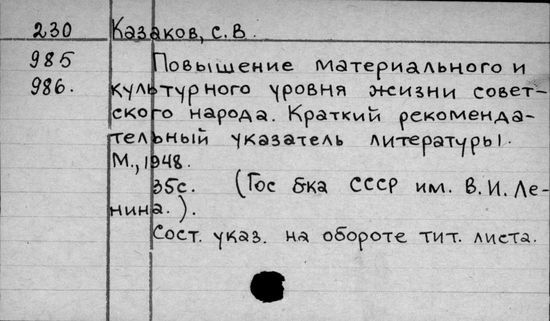 230 Казаков, С.В.
985 Повышение материального и
986. культурного уровня жизни совет-
ского народа. Краткий рекоменда-
тельный указатель литературы.
М., 1948.
35с. (Гос б-ка СССР им. В.И. Ле-
нина.).
Сост. указ. на обороте тит. листа.